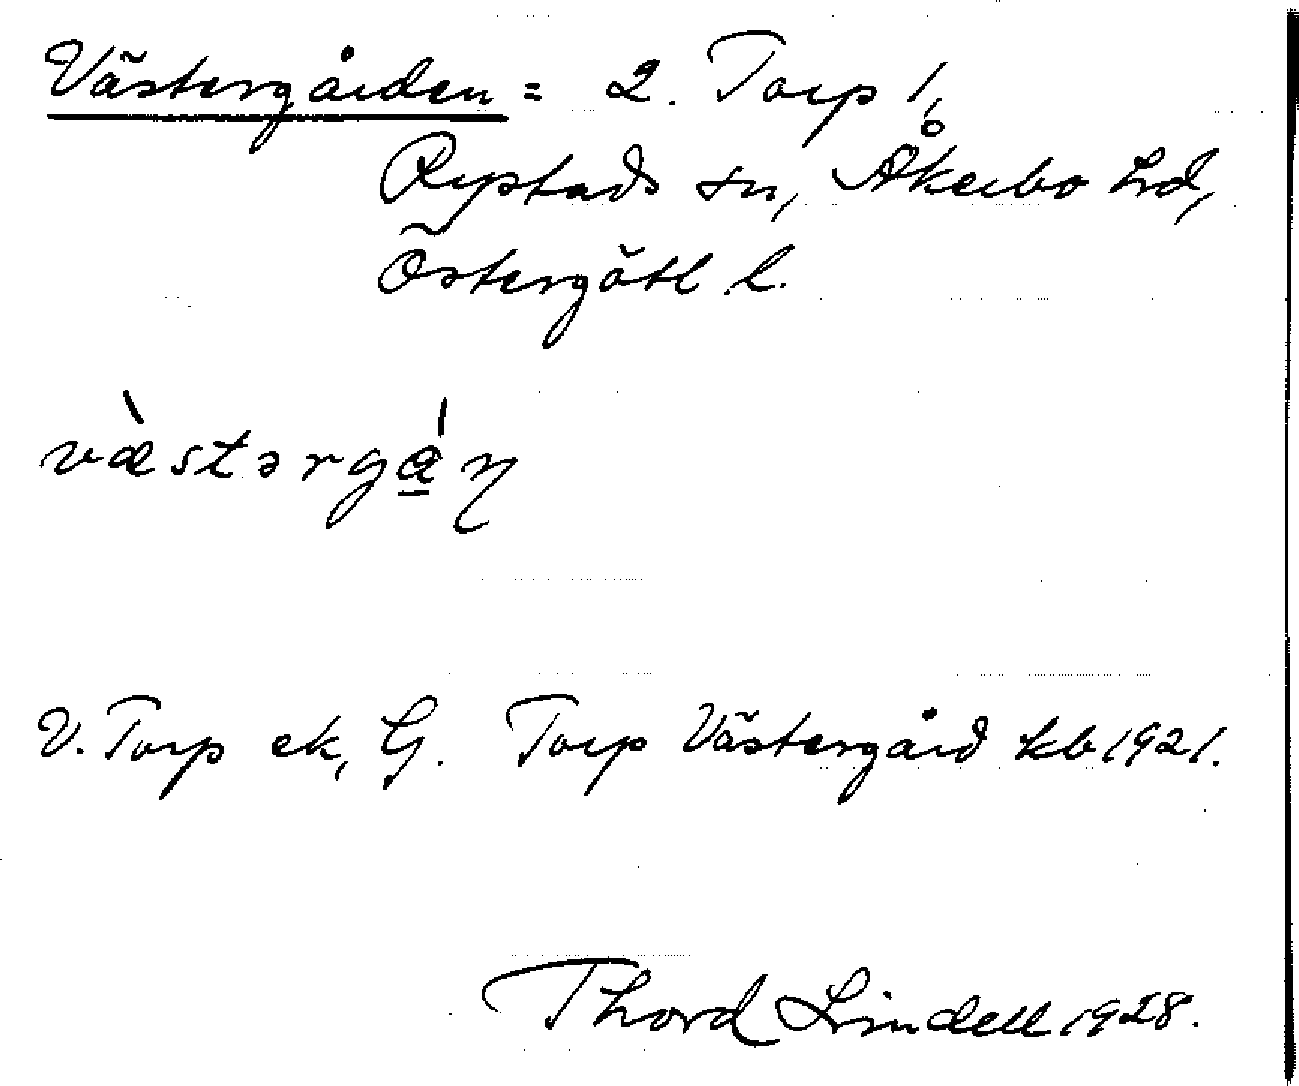 Västergården = 2. Torp 1,
Rystads sn, Åkerbo hd,
Östergötl l.
væ̀stərgá̱ɳ
V. Torp ek, G. Torp Västergård kb 1921.
Thord Lindell 1928.